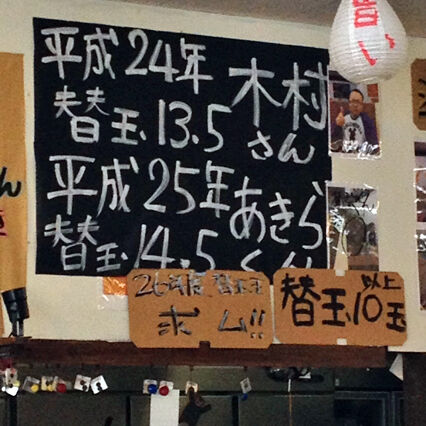 平成24年
替玉13.5
木村
さん
平成25年
替玉14.5
あきら
くん
26年度 替玉王
求ム!!
替玉10玉
以上
ん